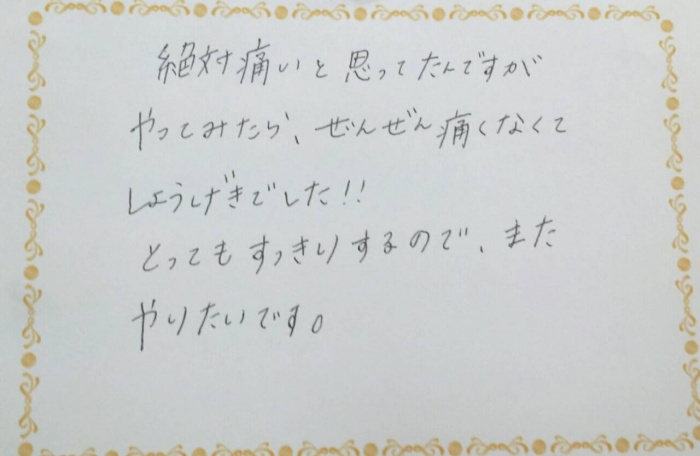 絶対痛いと思ってたんですが
やってみたら、ぜんぜん痛くなくて
しょうげきでした!!
とってもすっきりするので、また
やりたいです。